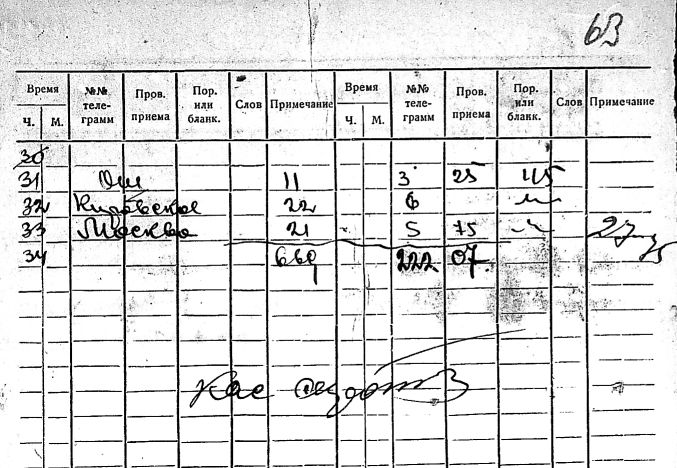 63
Время №№ теле-грамм Пров. приема Пор. или бланк. Слов Примечание Время №№ теле-грамм Пров. приема Пор. или бланк. Слов Примечание
Ч. М. Ч. М.
30
31 Ош 11 3 25 45
32 Кировское 22 6 —〃—
33 Москва 21 5 75 —〃— 27 75
34 669 222 07